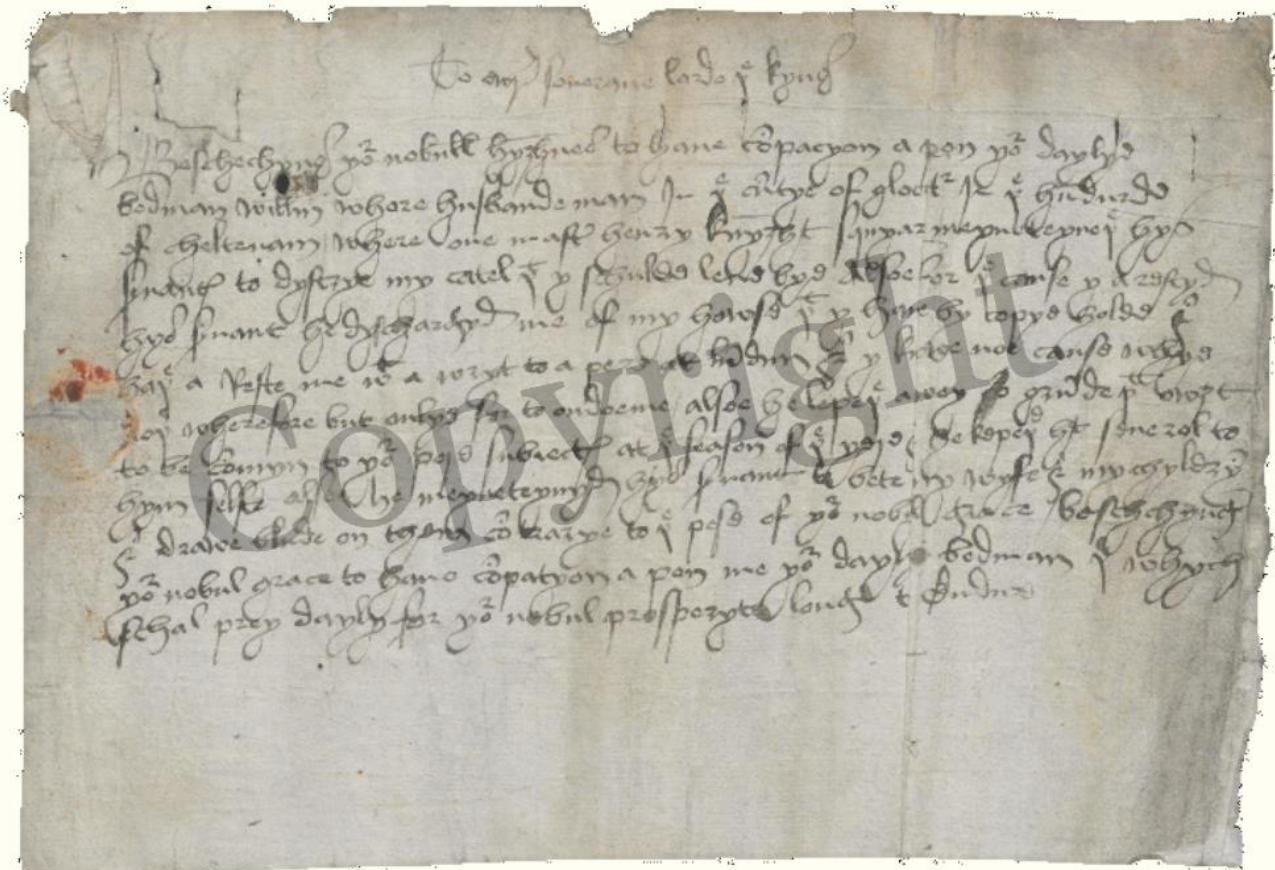 To owr soverane lorde þe kyng
Beschechyng yor nobull hyghnes to haue cōpacyon a pon yor daylye
bedman willm whore husbandeman In þe cūtye of glocetr In þe hūdurde
of cheltenam where one mastr henry knyght squyar meynteyneþ hys
s'uantes to dystry my catel þt y schulde leue bye Alsoe for þe cause y arestyd
hys s'uant he dyschargyd me of my howse þt y haue by copye holde &
haþ a Reste me wt a wryt to a pere at lūdun & y knowe noe cause whye
nor wherefore but onlye for to ondoe me alsoe he kepeþ awey grūde þt owȝt
to be cōmyn to yor pore subiectes at þe season of þe yere & he kepeþ ht seuerol to
hym selfe alsoe he meynteynyd hys s'uant to bete my wyfe & my chyldryn
& drawe blode on them cōtrarye to þe pese of yor nobul grace beschechyng
yor nobul grace to haue cōpatyon a pon me yor dayly bedman þe whych
schal prey dayly for yor nobul prosperyte longe t Endure
Copyright